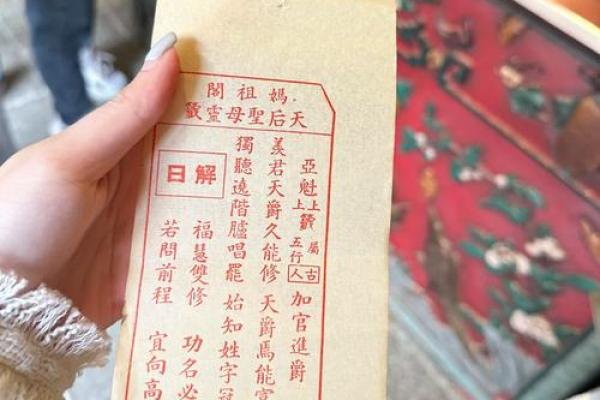 媽祖閣
天后聖母靈籤
亞魁 上上籤 屬五行 古人 加官進爵
羨君天爵久能修 天爵焉能
獨聽遶階臚唱罷 始知姓字冠
解曰
福慧雙修 功名必
若問前程 宜向高